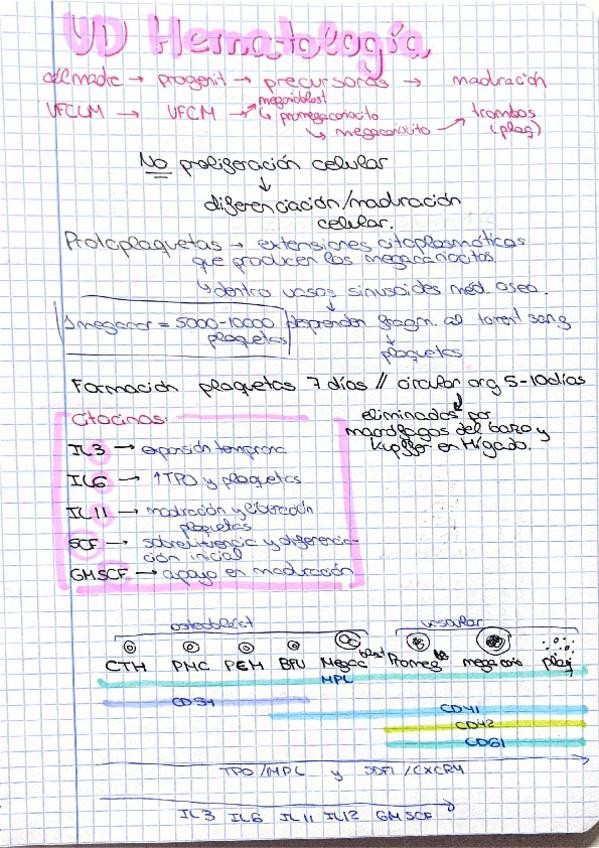 UD Hematología
cel madre → progenit → precursoras → maduración
UFCLM → UFCM → megarioblast
↳ promegacariocito
↳ megacariocito → trombos
(plaq)
No proliferación celular
↓
diferenciación/maduración
celular.
Protoplaquetas → extensiones citoplasmáticas
que producen los megacariocitos
↳ dentro vasos sinusoides med. osea.
1 megacar = 5000-10000
plaquetas
desprenden fragm. al torrent sang
↓
plaquetas
Formación plaquetas 7 días // circular org 5-10días
↓
eliminados por
macrófagos del bazo y
Kupffer en Hígado.
Citocinas:
IL3 → expansión temprana
IL6 → ↑TPO y plaquetas
IL11 → maduración y liberación
plaquetas
SCF → sobrevivencia y diferenci-
ación inicial
GMSCF → apoyo en maduración
osteoblast vascular
CTH PMC PEM BFU Megac blast Promeg megacario plaq
MPL
CD34
CD41
CD42
CD61
TPO/MPL y SDF1/CXCR4
IL3 IL6 IL11 IL12 GMSCF